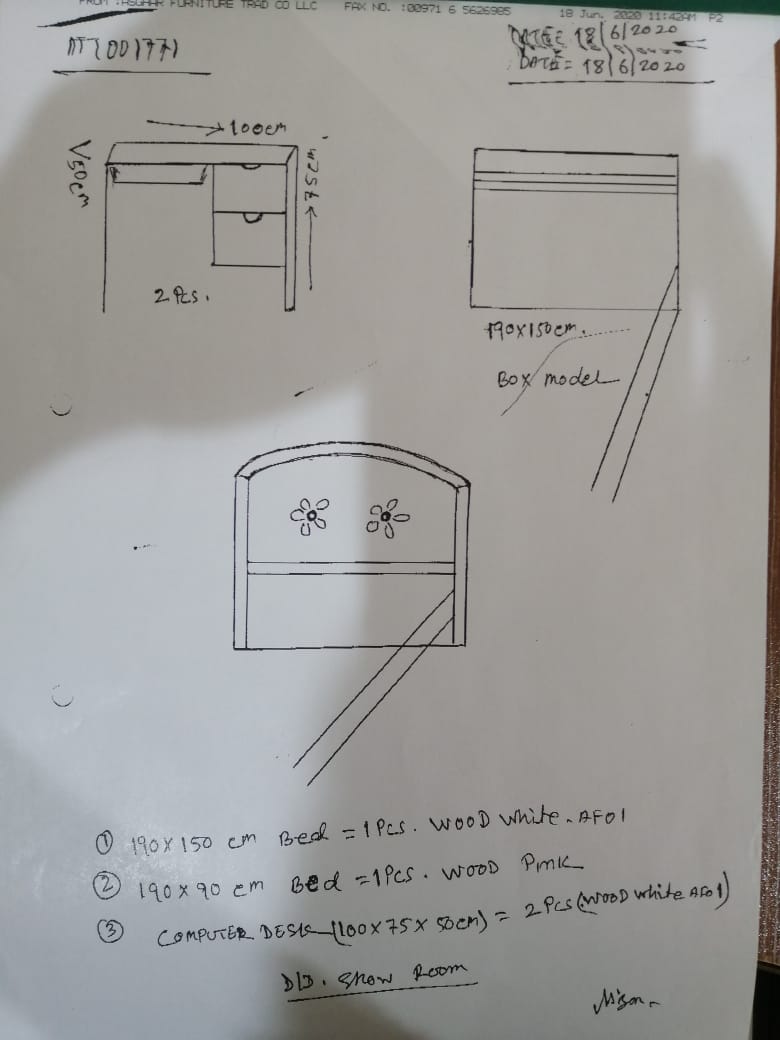 FROM :ASGHAR FURNITURE TRAD CO LLC FAX NO. :00971 6 5626985 18 Jun. 2020 11:42AM P2
DATE= 18/6/2020
DATE= 18/6/2020
100cm
50cm
75cm
2 Pcs.
190x150cm.
BOX model
① 190 x 150 cm Bed = 1 Pcs. WOOD white. AF01
② 190 x 90 cm Bed = 1 Pcs. WOOD Pink
③ COMPUTER DESK (100 x 75 x 50cm) = 2 Pcs (WOOD white AF01)
D/D. Show Room